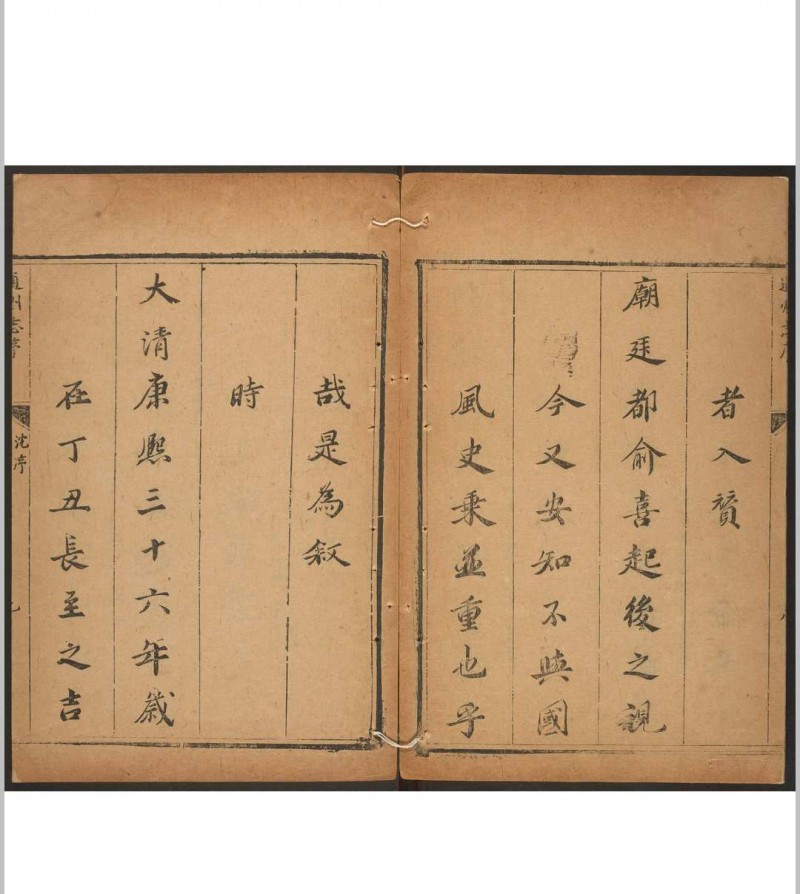 者入贊
廟廷都俞喜起後之視
今又安知不與國
風史乘並重也乎
哉是為敘
時
大清康熙三十六年歲
在丁丑長至之吉
通州志序
沈序
九